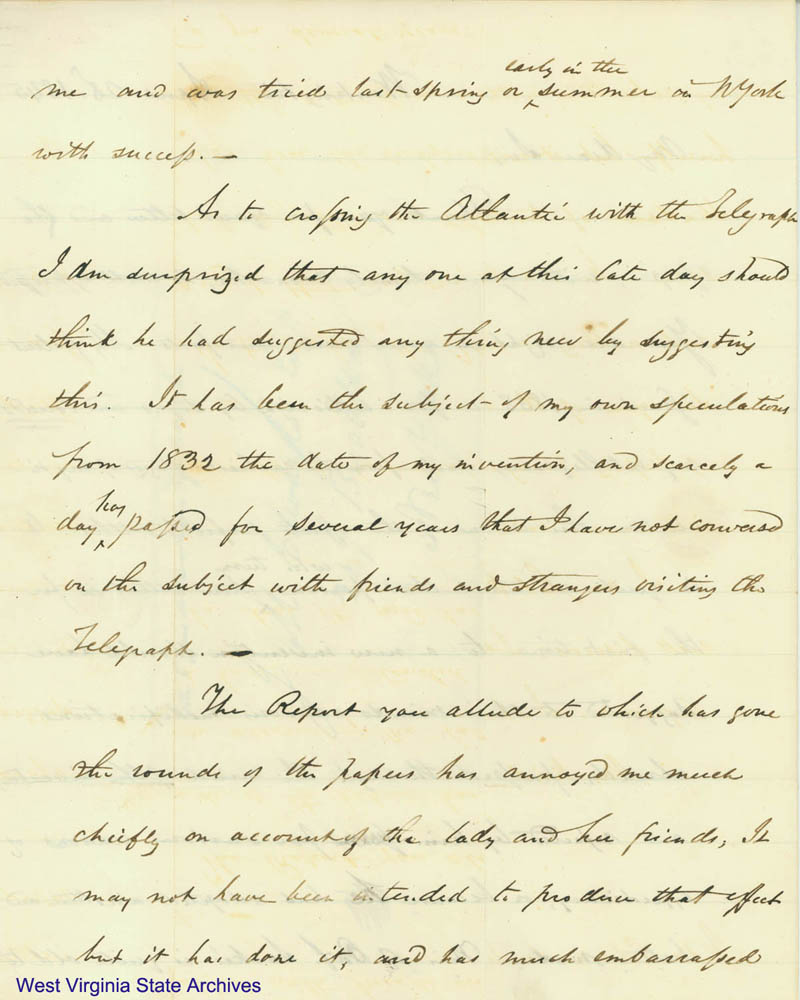 early in the
me and was tried last spring or ^ summer in NYork
with success. —
As to crossing the Atlantic with the Telegraph
I am surprized that any one at this late day should
think he had suggested any thing new by suggesting
this. It has been the subject of my own speculations
from 1832 the date of my invention, and scarcely a
has
day ^ passed for several years that I have not conversed
on the subject with friends and strangers visiting the
Telegraph. —
The Report you allude to which has gone
the rounds of the papers has annoyed me much
chiefly on account of the lady and her friends; It
may not have been intended to produce that effect
but it has done it, and has much embarrassed
West Virginia State Archives